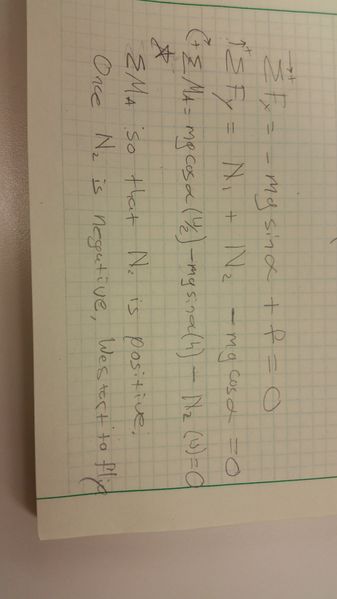 →+ ΣFx = -mg sinα + f = 0
↑+ ΣFy = N₁ + N₂ - mg cosα = 0
↻+ ΣM_A = mg cosα (½) - mg sinα (h) - N₂ (w) = 0
☆
ΣM_A so that N₂ is positive.
Once N₂ is negative, we start to flip